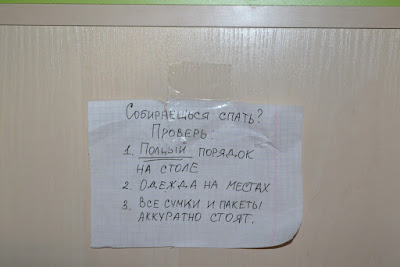 Собираешься спать?
Проверь:
1. Полный порядок
на столе
2. Одежда на местах
3. Все сумки и пакеты
аккуратно стоят.